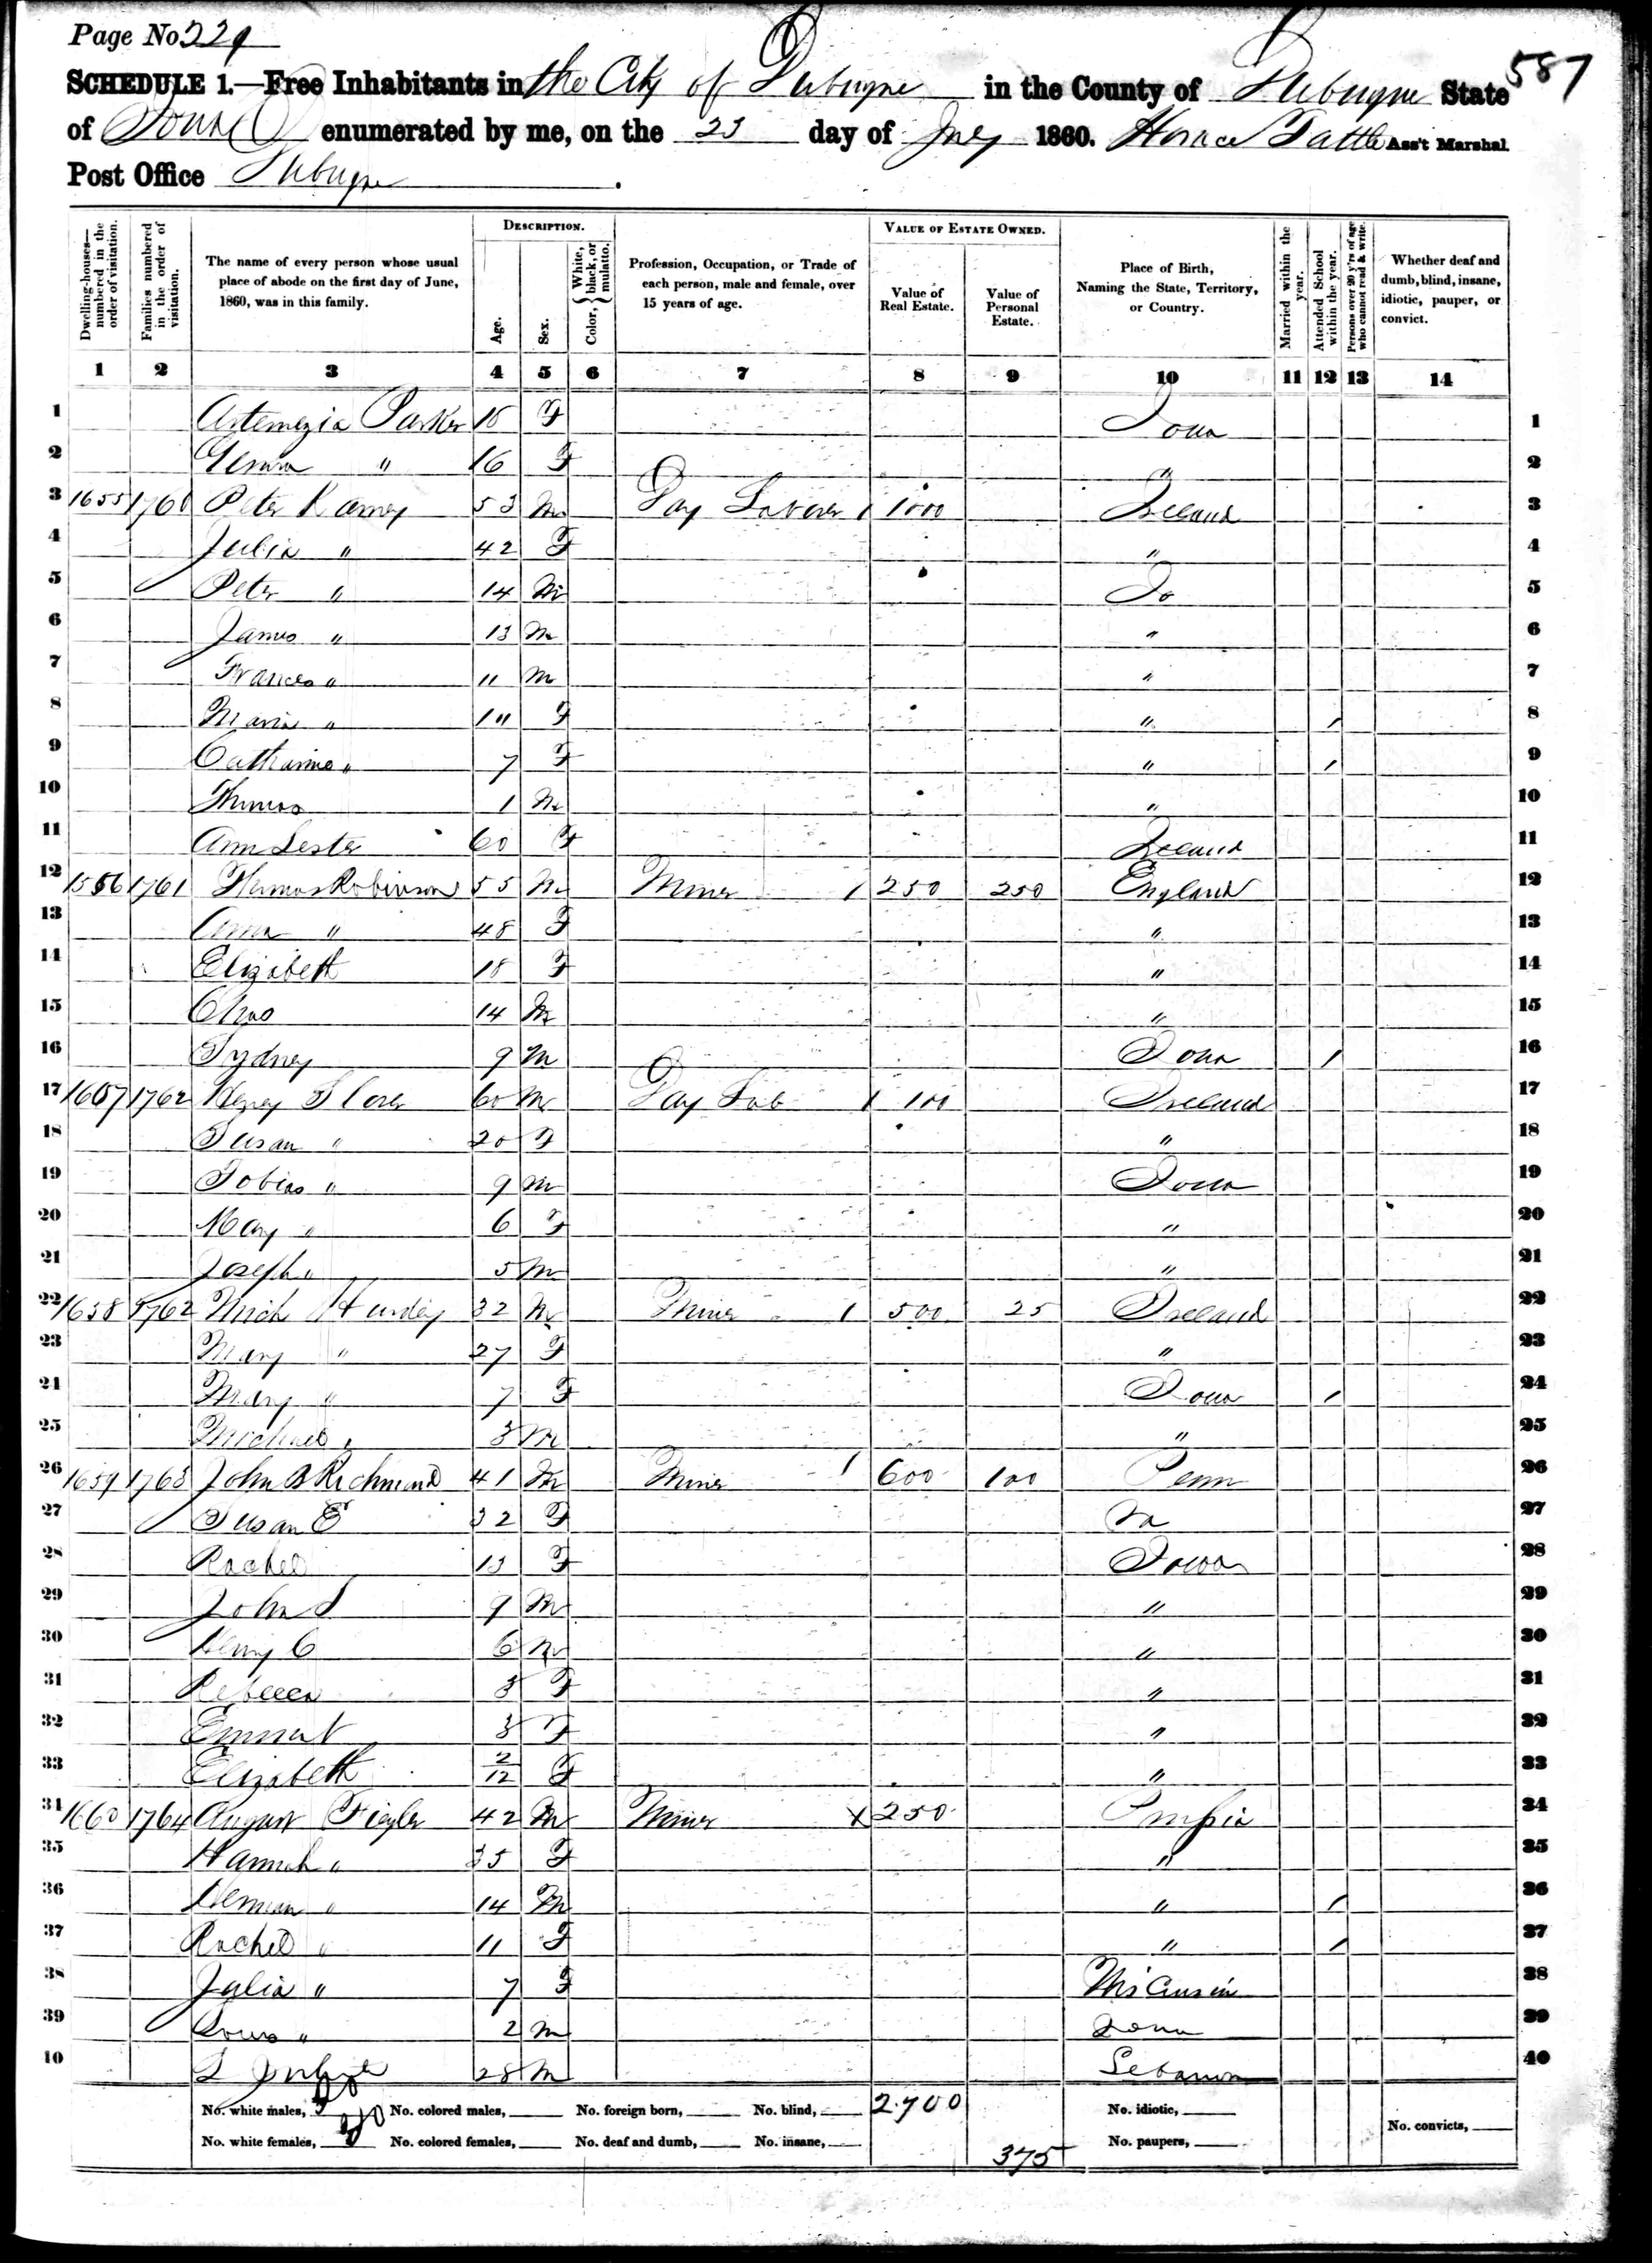 Page No 229
587
SCHEDULE 1.—Free Inhabitants in the City of Dubuque in the County of Dubuque State
of Iowa enumerated by me, on the 23 day of July 1860. Horace Tuttle Ass't Marshal
Post Office Dubuque.
Dwelling-houses—numbered in the order of visitation.
Families numbered in the order of visitation.
The name of every person whose usual place of abode on the first day of June, 1860, was in this family.
DESCRIPTION.
Age.
Sex.
Color, { White, black, or mulatto.
Profession, Occupation, or Trade of each person, male and female, over 15 years of age.
VALUE OF ESTATE OWNED.
Value of Real Estate.
Value of Personal Estate.
Place of Birth, Naming the State, Territory, or Country.
Married within the year.
Attended School within the year.
Persons over 20 y'rs of age who cannot read & write.
Whether deaf and dumb, blind, insane, idiotic, pauper, or convict.
1 2 3 4 5 6 7 8 9 10 11 12 13 14
1 Artemezia Parker 18 F Iowa 1
2 " 16 F " 2
3 1655 1760 Peter 53 m Day Laborer 1 1000 Ireland 3
4 Julia " 42 F " 4
5 Peter " 14 m Io 5
6 James " 13 m " 6
7 Frances " 11 m " 7
8 Maria " 10 F " / 8
9 Catharine " 7 F " / 9
10 Thomas 1 m " 10
11 Ann Lester 60 F Ireland 11
12 1556 1761 Thomas Robinson 55 m Miner / 250 250 England 12
13 Ann " 48 F " 13
14 Elizabeth 18 F " 14
15 Chas 14 m " 15
16 Sydney 9 m Iowa / 16
17 1657 1762 Henry 60 m Day Lab 1 100 Ireland 17
18 Susan " 20 F " 18
19 Tobias " 9 m Iowa 19
20 Mary " 6 F " 20
21 Joseph " 5 m " 21
22 1658 1762 Mich 32 m Miner / 500 25 Ireland 22
23 Mary " 27 F " 23
24 Mary " 7 F Iowa / 24
25 Michael " 3 m " 25
26 1659 1763 John B Richmond 41 m Miner / 600 100 Penn 26
27 Susan E 32 F 27
28 Rachel 13 F Iowa 28
29 John S 9 m " 29
30 Henry C 6 m " 30
31 Rebecca 3 F " 31
32 3 F " 32
33 Elizabeth 2/12 F " 33
34 1660 1764 August 42 m Miner x 250 Prussia 34
35 Hannah " 35 F " 35
36 Herman " 14 m " / 36
37 Rachel " 11 F " / 37
38 Julia " 7 F Wisconsin 38
39 Louis " 2 m Iowa 39
40 28 m 40
No. white males, No. colored males, No. foreign born, No. blind, 2700 No. idiotic, No. convicts,
No. white females, No. colored females, No. deaf and dumb, No. insane, 375 No. paupers,